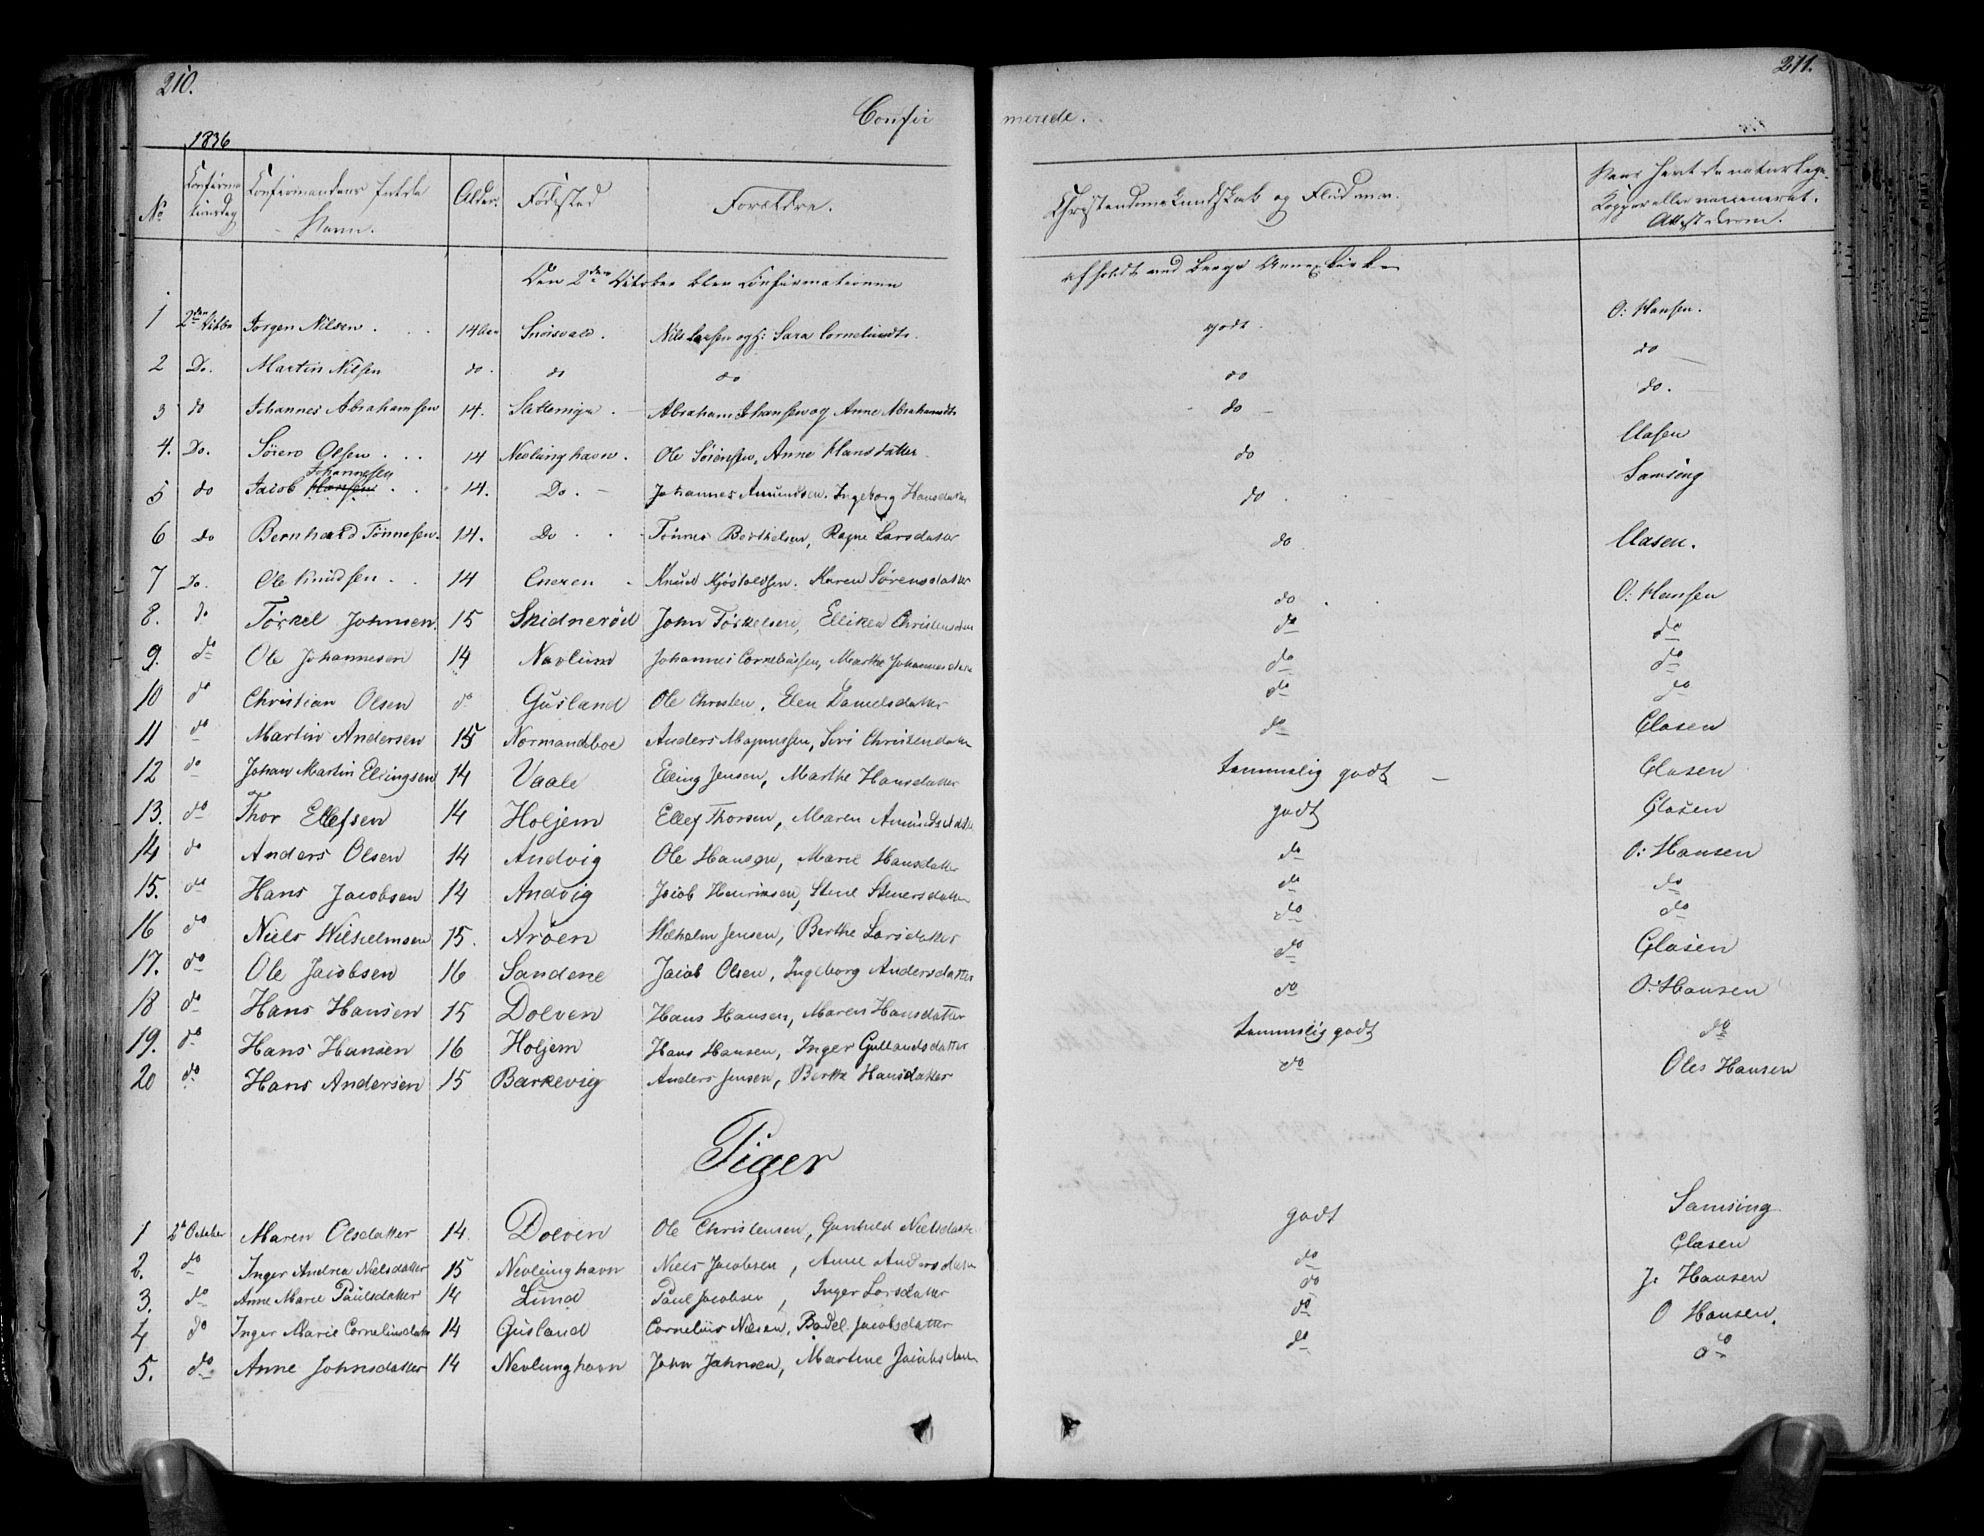 210.
211.
Confir merede.
1836
No Confirmationsdag Confirmandens fulde Navn. Alder. Fødested Forældre. Christendomskundskab og Flid Naar havt de naturlige Kopper eller vaccineret. Attest derom.
Den 2den October blev Confirmationen afholdt ved Bergs Annexkirke
1 2den Octbr Jørgen Nilsen 14 Aar Nils Larsen og H: Sara Cornelius godt. O: Hansen.
2 Do. Martin Nilsen do. do do do do
3 do Johannes Abrahamsen 14. Abraham og Anne do do.
4. Do. Sören Olsen 14 Nevlunghavn. Ole Sörensen, Anne Hansdatter do Clasen
5 do Jacob Johannesen Hansen 14. Do. Johannes Amundsen. Ingeborg Hansdatter do Samsing
6 do Bernhard Tönnesen. 14. Do Tönnes Berthelsen, Ragne Larsdatter do Clasen.
7 Do. Ole Knudsen 14 Eneren Knud Kjöstolfsen. Karen Sörensdatter do O: Hansen
8. do Törkel Johnsen. 15 Skidneröd John Törkelsen, Elliken Christensdatter do do
9. do Ole Johannesen 14 Navlund Johannes Corneliussen, Marthe Johannesdatter do do
10 do Christian Olsen do Gusland Ole Christen, Elen Danielsdatter do do
11 do Martin Andersen 15 Normandsboe Anders Magnussen, Siri Christendatter do Clasen
12 do Johan Martin Ellingsen 14 Vaale Elling Jensen, Marthe Hansdatter temmelig godt Clasen
13. do Thor Ellefsen 14 Holjem Ellef Thorsen, Maren Amundsdatter godt Clasen
14 do Anders Olsen 14 Andvig Ole Hansen, Marie Hansdatter do O: Hansen
15. do Hans Jacobsen 14 Andvig Jacob Henriksen, Stine Stiersdatter do do
16 do Niels Wilhelmsen 15. Aröen Wilhelm Jensen, Berthe Larsdatter do do
17. do Ole Jacobsen 16 Sandene Jacob Olsen, Ingeborg Andersdatter do Clasen
18 do Hans Hansen 15 Dolven Hans Hansen, Maren Hansdatter do O. Hansen
19. do Hans Hansen 16 Holjem Hans Hansen, Inger Gullandsdatter temmelig godt do
20 do Hans Andersen 15 Barkevig Anders Jensen, Berthe Hansdatter do Oles Hansen
Piger
1 2d October Maren Olsdatter 14. Dolven Ole Christensen, Gunhild Nielsdatter godt Samsing
2. do Inger Andrea Nielsdatter 15 Nevlunghavn Niels Jacobsen, Anne Andersdatter do Clasen
3. do Anne Marie Paulsdatter 14 Lund Paul Jacobsen, Inger Larsdatter do J. Hansen
4 do Inger Marie Corneliusdatter 14 Gusland Cornelius Nilsen, Bodel Jacobsdatter do O Hansen.
5. do Anne Johnsdatter 14 Nevlunghavn John Johnsen, Martine Jacobsdatter do do